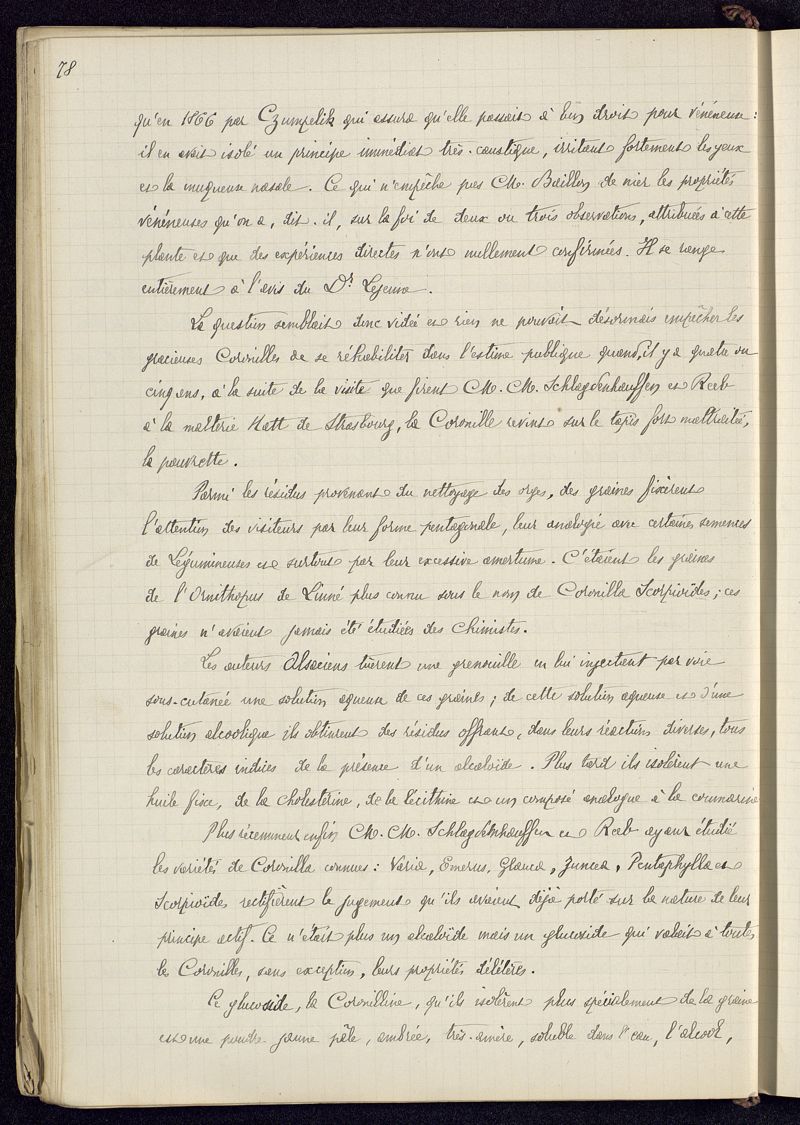 78
qu'en 1866 par Czumpelik qui assura qu'elle passait à bon droit pour vénéneuse :
il en avait isolé un principe immédiat très-caustique, irritant fortement les yeux
et la muqueuse nasale. Ce qui n'empêche pas M. Baillon de nier les propriétés
vénéneuses qu'on a, dit-il, sur la foi de deux ou trois observations, attribuées à cette
plante et que des expériences directes n'ont nullement confirmées. Il se range
entièrement à l'avis du Dr Lejeune.
La question semblait donc vidée et rien ne pouvait désormais empêcher les
gracieuses Coronilles de se réhabiliter dans l'estime publique quand, il y a quatre ou
cinq ans, à la suite de la visite que firent M. M. Schlagdenhauffen et Reeb
à la malterie Hatt de Strasbourg, la Coronille revint sur le tapis fort maltraitée,
la pauvrette.
Parmi les résidus provenant du nettoyage des orges, des graines fixèrent
l'attention des visiteurs par leur forme pentagonale, leur analogie avec certaines semences
de Légumineuses et surtout par leur excessive amertume. C'étaient les graines
de l'Ornithopus de Linné plus connu sous le nom de Coronilla Scorpioïdes ; ces
graines n'avaient jamais été étudiées des Chimistes.
Les auteurs Alsaciens tuèrent une grenouille en lui injectant par voie
sous-cutanée une solution aqueuse de ces graines ; de cette solution aqueuse et d'une
solution alcoolique ils obtinrent des résidus offrant, dans leurs réactions diverses, tous
les caractères indices de la présence d'un alcaloïde. Plus tard ils isolèrent une
huile fixe, de la cholestérine, de la lécithine et un composé analogue à la coumarine
Plus récemment enfin M. M. Schlagdenhauffen et Reeb ayant étudié
les variétés de Coronilla connues : Varia, Emerus, Glauca, Juncea, Pentaphylla et
Scorpioïdes rectifièrent le jugement qu'ils avaient déjà porté sur la nature de leur
principe actif. Ce n'était plus un alcaloïde mais un glucoside qui valait à toutes
les Coronilles, sans exception, leurs propriétés délétères.
Ce glucoside, la Coronilline, qu'ils isolèrent plus spécialement de la graine
est une poudre jaune pâle, ambrée, très-amère, soluble dans l'eau, l'alcool,